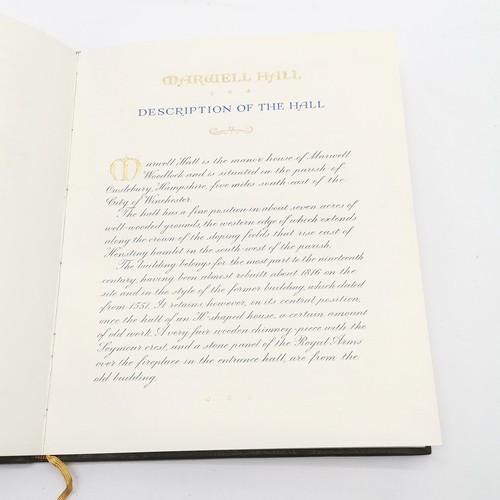 MARWELL HALL
DESCRIPTION OF THE HALL
Marwell Hall is the manor house of Marwell
Woodlock and is situated in the parish of
Owslebury, Hampshire, five miles south-east of the
City of Winchester.
The hall has a fine position in about seven acres of
well-wooded grounds, the western edge of which extends
along the crown of the sloping fields that rise east of
Hensting hamlet in the south-west of the parish.
The building belongs for the most part to the nineteenth
century, having been almost rebuilt about 1816 on the
site and in the style of the former building, which dated
from 1551. It retains, however, in its central position,
once the hall of an 'H' shaped house, a certain amount
of old work. A very fair wooden chimney-piece with the
Seymour crest, and a stone panel of the Royal Arms
over the fireplace in the entrance hall, are from the
old building.